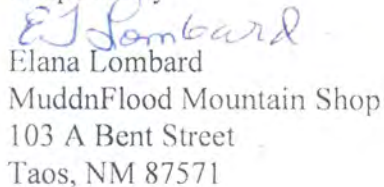 EJ Lombard
Elana Lombard
MuddnFlood Mountain Shop
103 A Bent Street
Taos, NM 87571